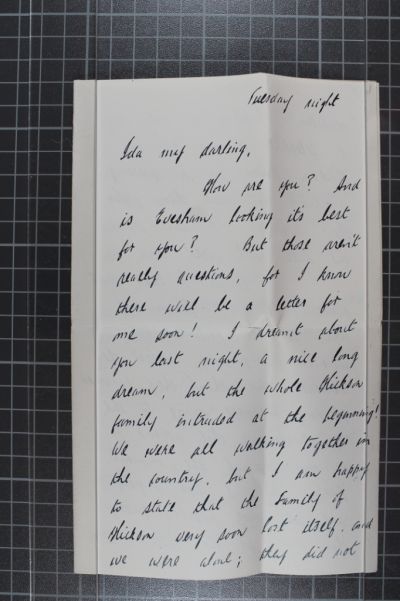 Tuesday night
Ida my darling,
How are you? And
is Evesham looking it's best
for you? But those aren't
really questions, for I know
there will be a letter for
me soon! I dreamt about
you last night, a nice long
dream, but the whole Hickson
family intruded at the beginning!
We were all walking together in
the country, but I am happy
to state that the Family of
Hickson very soon lost itself, and
we were alone; they did not